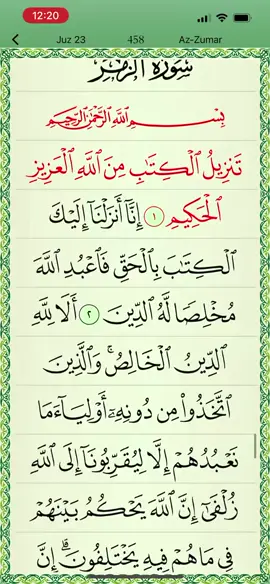 12:20
Juz 23 458 Az-Zumar
سُورَةُ الزُّمَرِ
بِسْمِ اللَّهِ الرَّحْمَٰنِ الرَّحِيمِ
تَنزِيلُ ٱلْكِتَٰبِ مِنَ ٱللَّهِ ٱلْعَزِيزِ
ٱلْحَكِيمِ ١ إِنَّآ أَنزَلْنَآ إِلَيْكَ
ٱلْكِتَٰبَ بِٱلْحَقِّ فَٱعْبُدِ ٱللَّهَ
مُخْلِصًا لَّهُ ٱلدِّينَ ٢ أَلَا لِلَّهِ
ٱلدِّينُ ٱلْخَالِصُ ۚ وَٱلَّذِينَ
ٱتَّخَذُوا۟ مِن دُونِهِۦٓ أَوْلِيَآءَ مَا
نَعْبُدُهُمْ إِلَّا لِيُقَرِّبُونَآ إِلَى ٱللَّهِ
زُلْفَىٰٓ إِنَّ ٱللَّهَ يَحْكُمُ بَيْنَهُمْ
فِى مَا هُمْ فِيهِ يَخْتَلِفُونَ ۗ إِنَّ